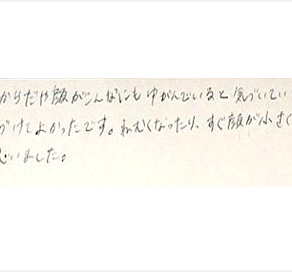 からだや顔がこんなにもゆがんでいると気づいてい
づけてよかったです。ねむくなったり、すぐ顔が小さく
いました。